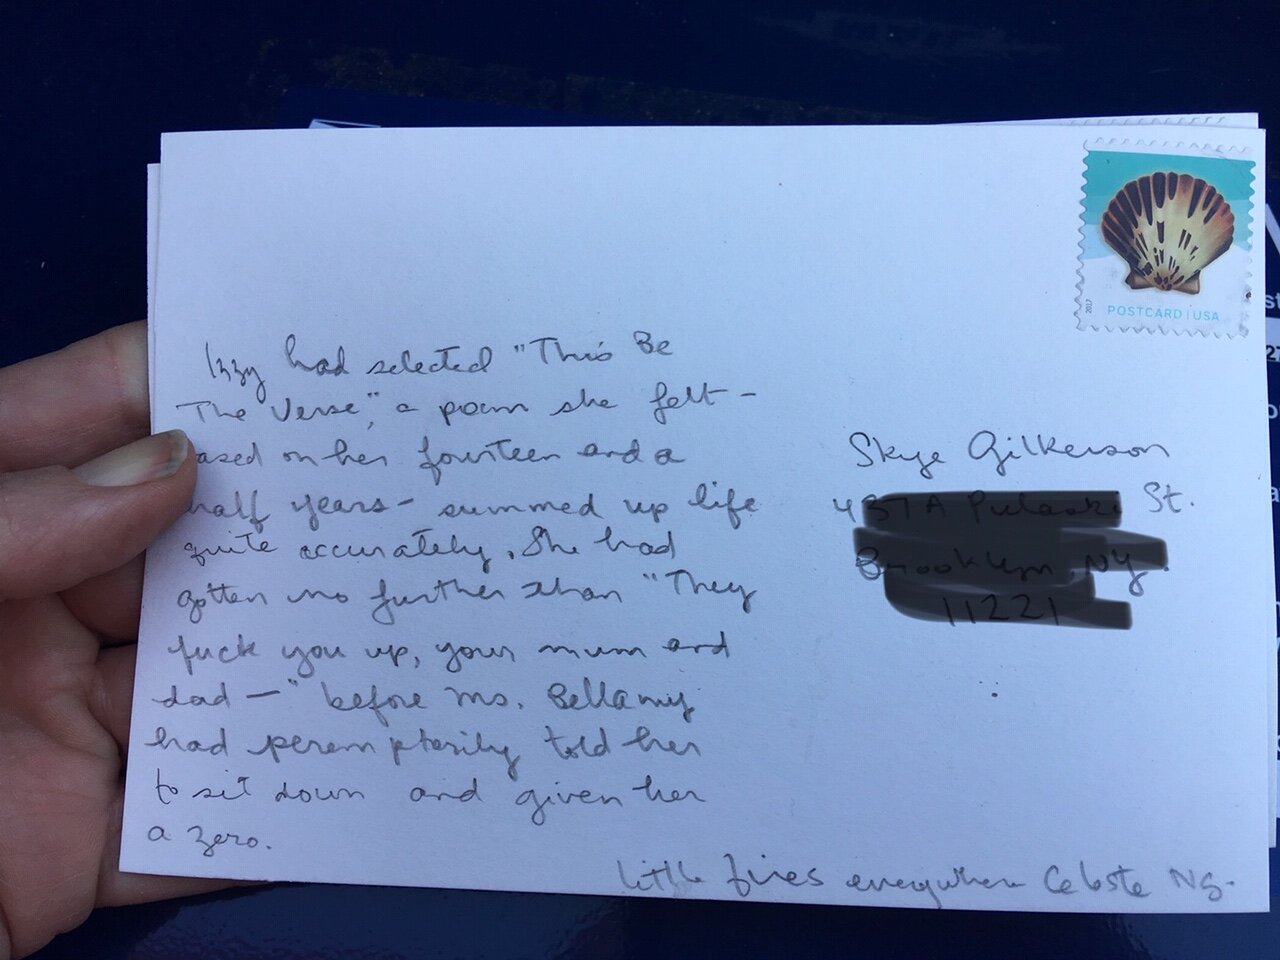 POSTCARD | USA
2017
Izzy had selected "This Be
The Verse," a poem she felt -
based on her fourteen and a
half years - summed up life
quite accurately. She had
gotten no further than "They
fuck you up, your mum and
dad —" before Ms. Bellamy
had peremptorily told her
to sit down and given her
a zero.
Skye Gilkerson
St.
little fires everywhere Celeste Ng.